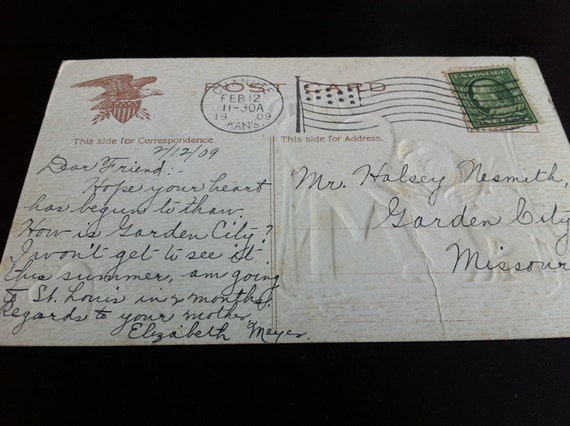 POST CARD
CHANUTE
FEB 12
11-30A
1909
KANS.
U.S. POSTAGE
This side for Correspondence.
This side for Address.
2/12/09
Dear Friend:-
Hope your heart
has begun to thaw.
How is Garden City?
I won't get to see it
this summer, am going
to St. Louis in 2 months.
Regards to your mother.
Elizabeth Meyer.
Mr. Halsey Nesmith,
Garden City
Missour